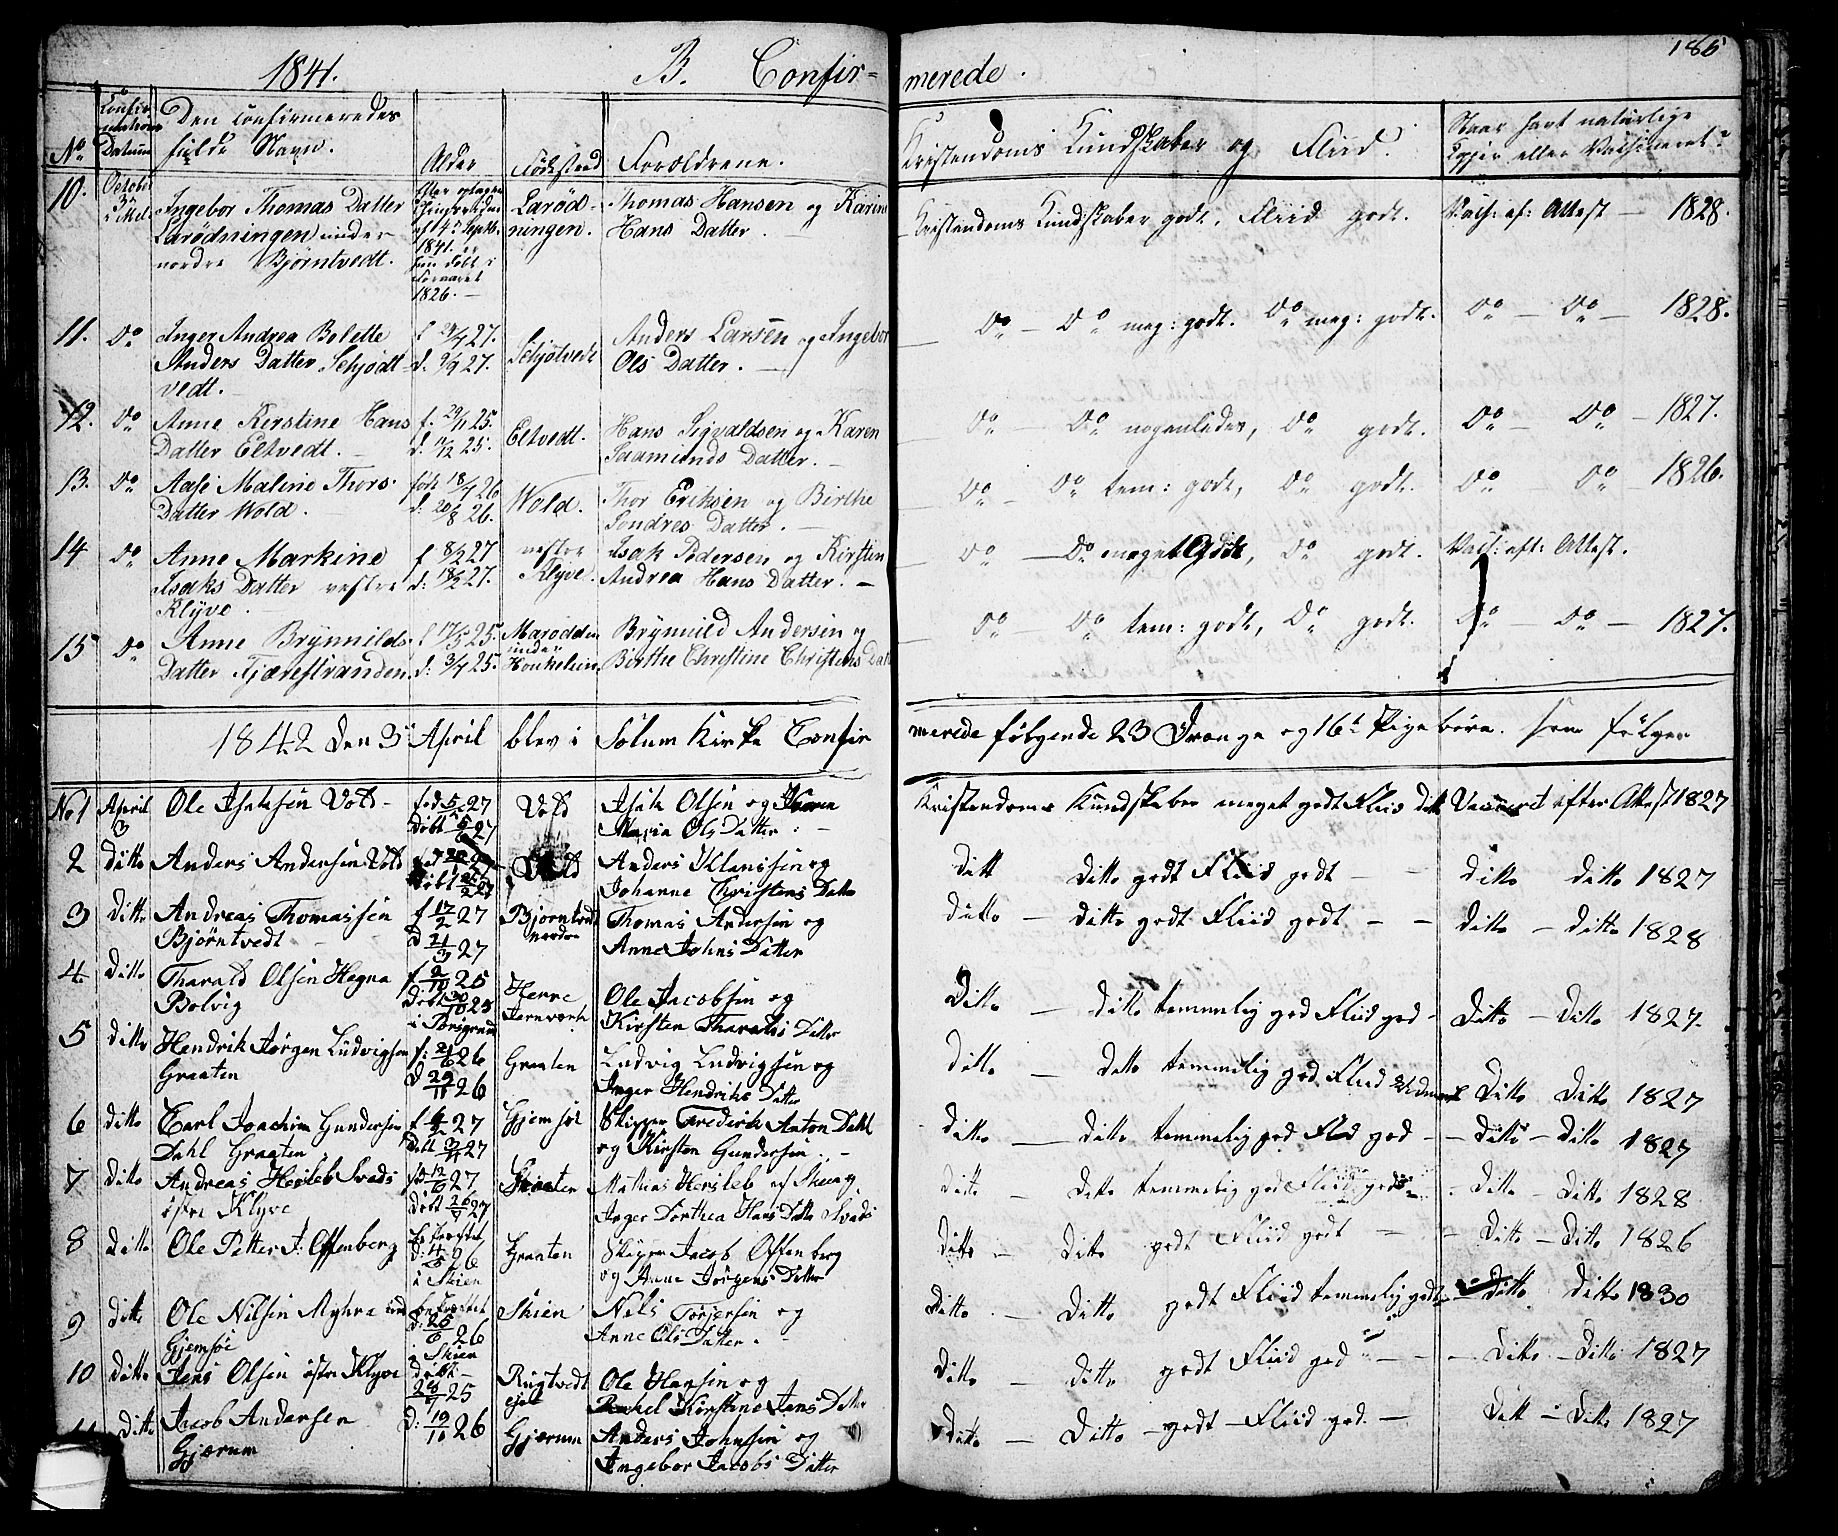 1841. B. Confir=
merede. 186
No
Confir-
mations
Datum
Den confirmeredes
fulde Navn.
Alder
Fødested
Foræltrene.
Kristendoms Kundskaber og Fliid.
Naar havt natürlige
Kopper eller Vaksineret?
10. October
3die
Ingebor Thomas Datter
Larødningen under
nordre Bjørntvedt.
1841. er
hun døbt i
1826. —
Larød-
ningen.
Thomas Hansen og Karine
Hans Datter. —
Kristendoms Kundskaber godt, Fliid godt. Vacs: af: Attest — 1828.
11. Do Inger Andrea Bolette
Anders Datter Schjødt-
vedt. —
Schjøtvedt
Anders Larsen og Ingebor
Ols Datter. —
Do — Do meg: godt. Do meg: godt. Do — Do — 1828.
12. Do Anne Kerstine Hans
Datter Eltvedt. —
f. 29/11 25.
d. 11/12 25.
Eltvedt.
Hans Sigvaldsen og Karen
Saamunds Datter. —
Do — Do nogenledes, Do godt. Do — Do — 1827.
13. Do Aase Maline Thors
Datter Wold. —
født 18/7 26
d: 20/8 26.
Wold.
Thor Eriksen og Birthe
Sondres Datter. —
Do — Do tem: godt, Do godt. Do — Do — 1826.
14 Do Anne Markine
Isaks Datter vestre
Klyve. —
f 8/2 27
d: 18/2 27.
vestre
Klyve.
Isak Pedersen og Kirsten
Andrea Hans Datter. —
Do — Do meget Godt, Do godt. Vacs: eft: Attest.
15 Do Anne Brynnilds
Datter Fjærestranden.
f 17/5 25.
d: 3/7 25.
Marødden
under
Brynnild Andersen og
Birthe Christine Christens Dat
Do Do tem: godt, Do godt. Do — Do — 1827.
1842 den 3 April blev i Solum Kirke Confir
merede følgende 23 Drenge og 16 Pigebørn. som følger
No 1 April
3
Ole Isaksen Vold —
fød 5/5 27
Døbt 5/6 27
Vold
Isak Olsen og Karen
Maria Ols Datter. —
Kristendoms Kundskaber meget godt Fliid ditt Vaccineret efter Attest 1827
2 ditto Anders Andersen Vold
Vold
Anders Klemsen og
Johanne Christens Datter
Ditt Ditto godt Fliid godt — Ditto ditto 1827
3 Ditto Andreas Thomassen
Bjørntvedt —
f 17/2 27
D 21/3 27
Bjørntvedt
nordre
Thomas Andersen og
Anne Johns Datter
Ditto — Ditto godt Fliid godt — — Ditto — Ditto 1828
4. Ditto Tharald Olsen Hegna
Bolvig
f. 2/10 25
Døbt 30/10 25
i Porsgrund
Herre
Jernværk
Ole Jacobsen og
Kirsten Tharalds Datter
Ditto — Ditto temmelig god Fliid god — Ditto — Ditto 1827.
5 Ditto Hendrik Jørgen Ludvigsen
Graaten
D 29/11 26
Graaten
Ludvig Ludvigsen og
Inger Hendriks Datter
Ditto — Ditto temmelig god Fliid Udmærk Ditto Ditto 1827
6 ditto Carl Joachim Gundersen
Dahl Graaten
Gjemsøe
Skipper Frederik Anton Dahl
og Kirsten Gundersen. —
Ditto — Ditto temmelig god Fliid god — — Ditto — Ditto 1827
7 Ditto Andreas Hersleb Svads
østre Klyve
Mathias Hersleb af Skien og
Inger Dorthea Hans Datter Svads
Ditto — Ditto temmelig god Fliid god — Ditto — Ditto 1828
8 Ditto Ole Petter J: Offenberg
i Skien
Graaten
Skipper Jacob Offenberg
og Anne Jørgens Datter
Ditto — Ditto godt Fliid godt — — Ditto — Ditto 1826
9 Ditto Ole Nilsen Myhra und
Gjemsøe
i Skien
Skien
Niels Torjersen og
Anne Ols Datter. —
Ditto — Ditto godt Fliid temmelig godt — Ditto Ditto 1830
10 Ditto Jens Olsen østre Klyve
Døbt —
28/7 25
Rugtvedt
eje
Ole Hansen og
Rachel Kirstine Jens Datter
Ditto — Ditto godt Fliid god — — Ditto — Ditto 1827
11 Ditto Jacob Andersen
Gjærum
D: 19/11 26
Gjærum
Anders Johnsen og
Ingebor Jacobs Datter
Ditto — Ditto — godt — Fliid god. — Ditt — Ditto 1827